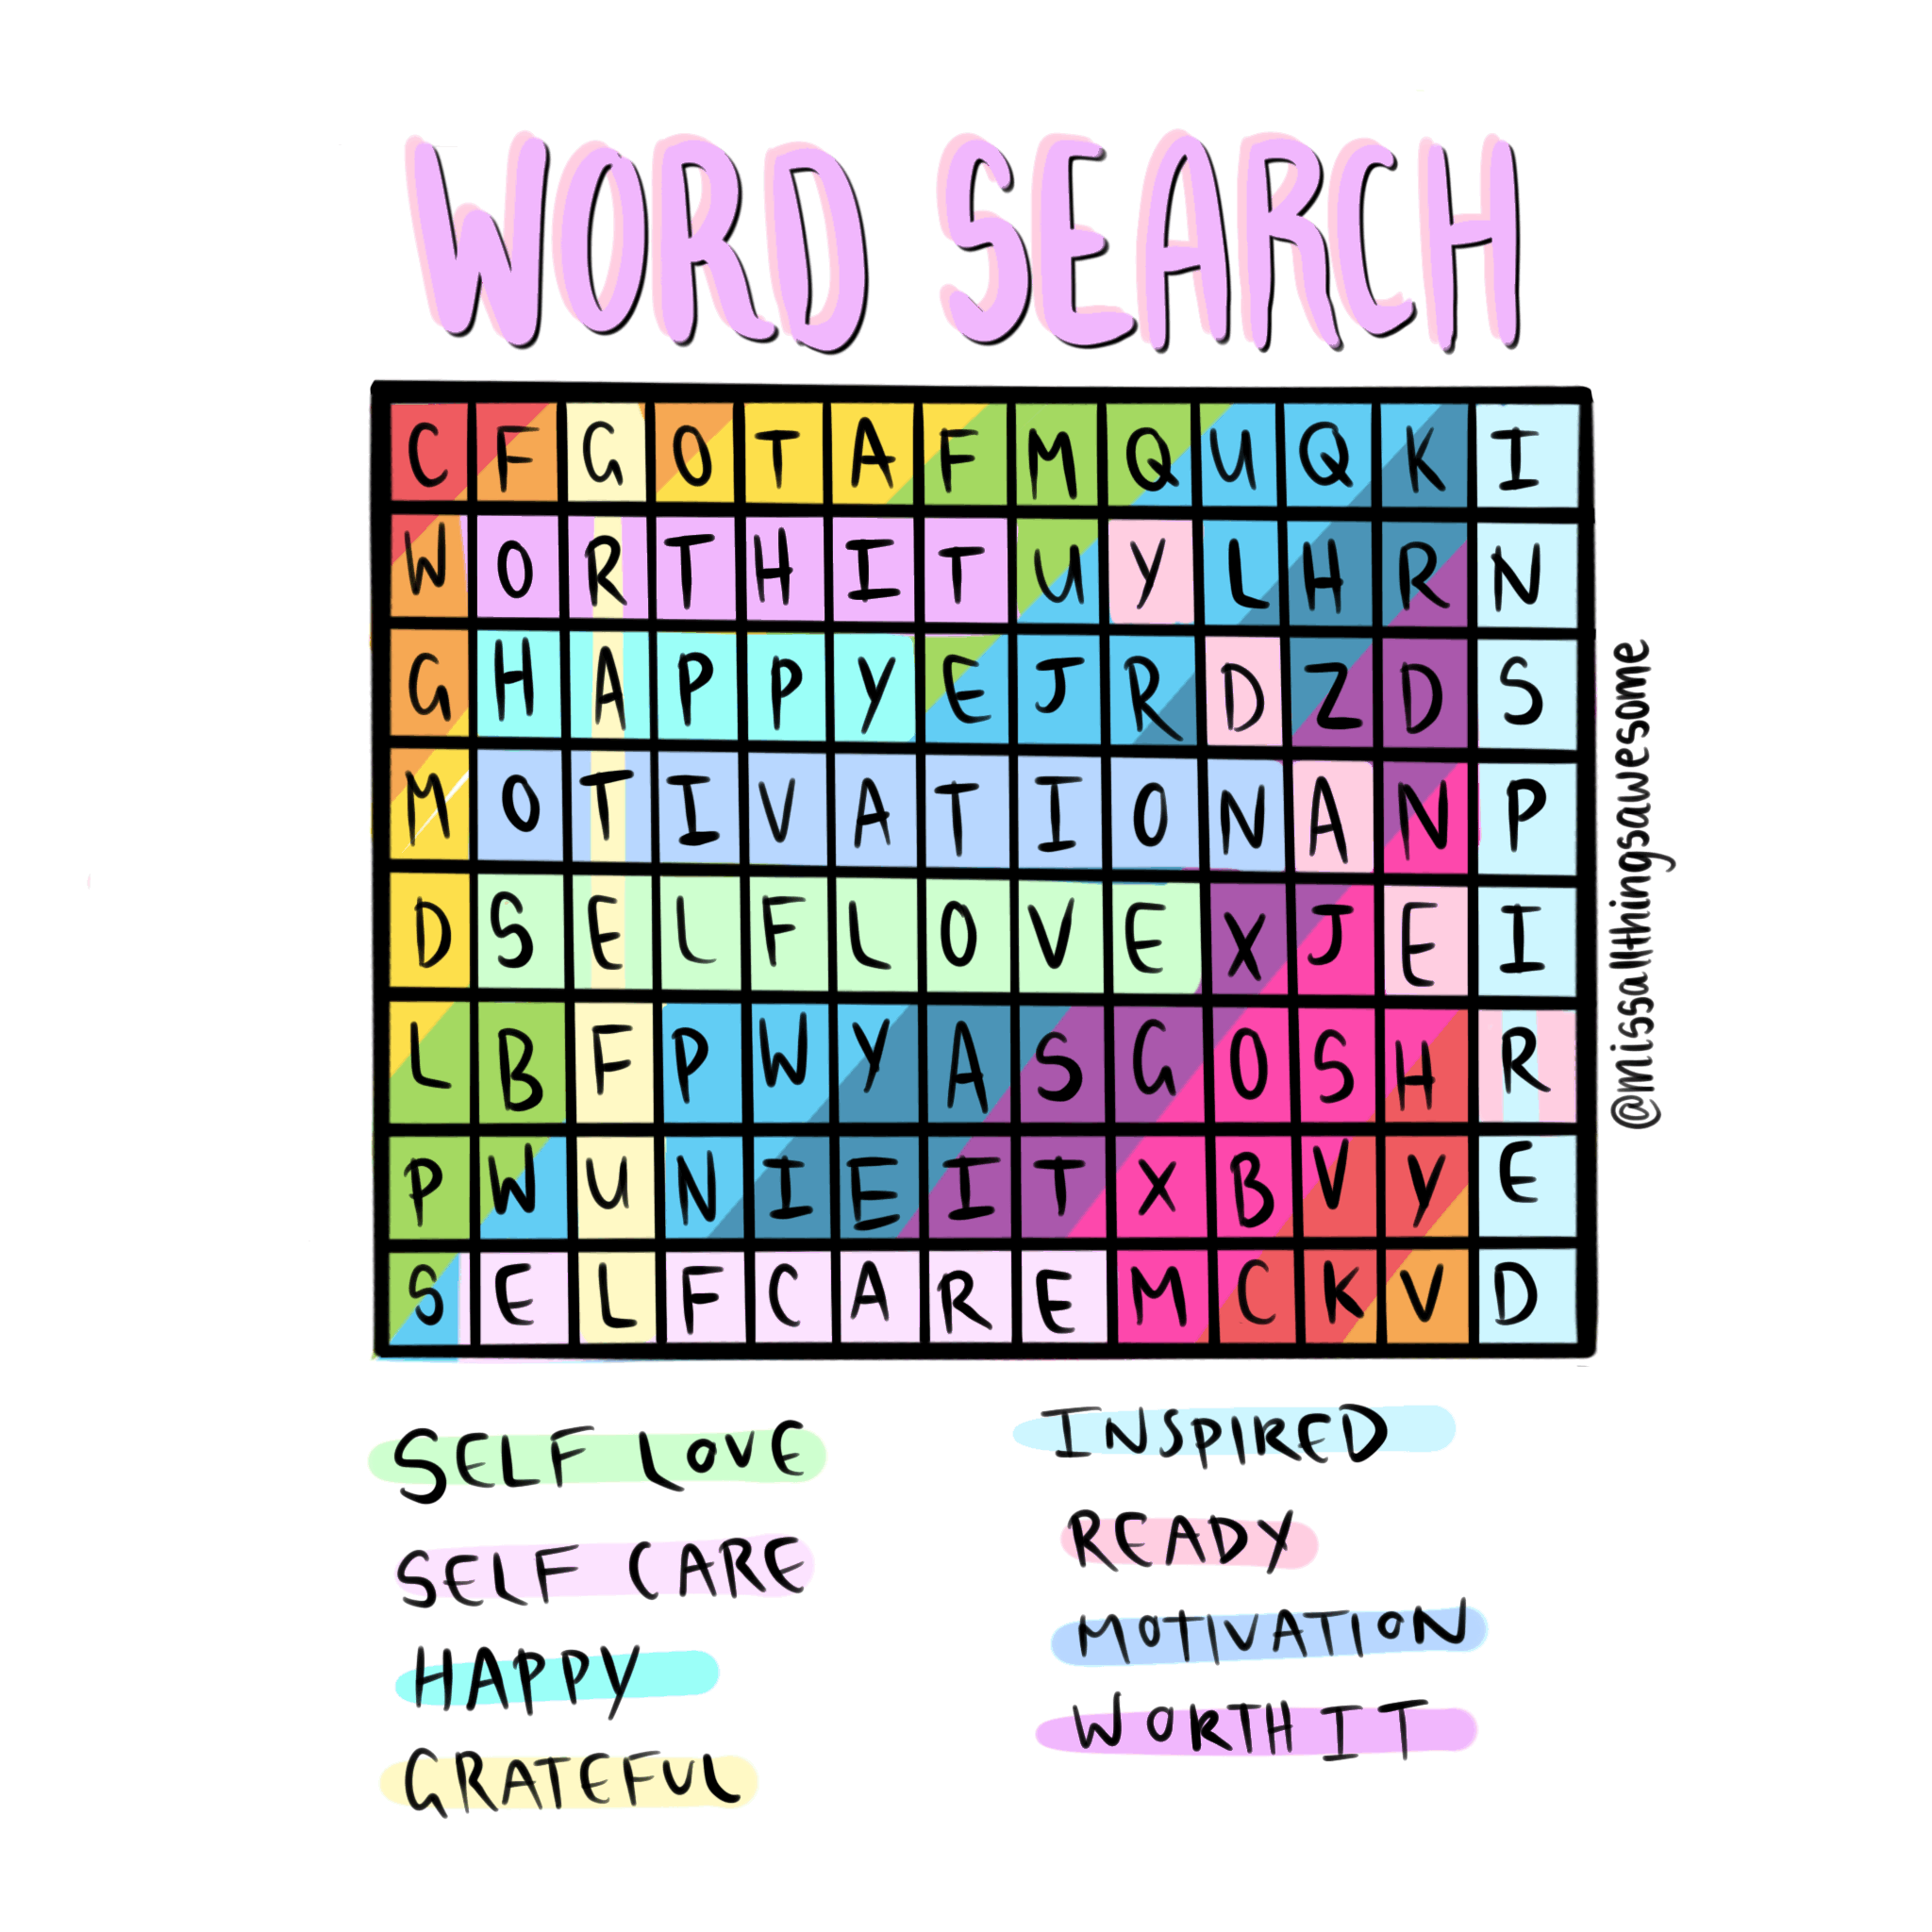 WORD SEARCH
C F G O T A F M Q U Q K I
W O R T H I T U Y L H R N
G H A P P Y E J R D Z D S
M O T I V A T I O N A N P
D S E L F L O V E X J E I
L B F P W Y A S G O S H R
P W U N I E I T X B V Y E
S E L F C A R E M C K V D
@missallthingsawesome
SELF LOVE
SELF CARE
HAPPY
GRATEFUL
INSPIRED
READY
MOTIVATION
WORTH IT